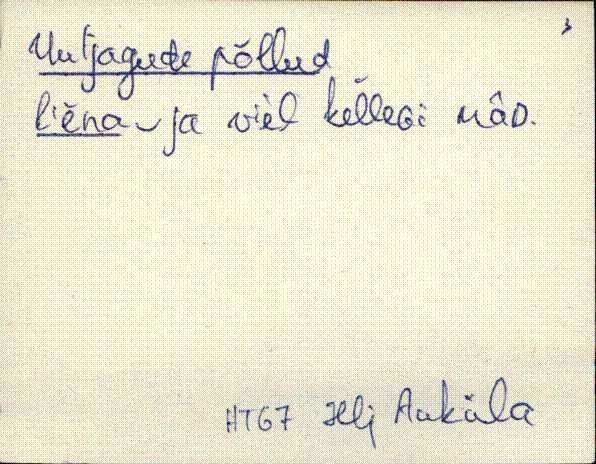 3
Uutjagude põllud
l'iena ja vièl kellegi nâD.
HTG7 Hlj Auküla